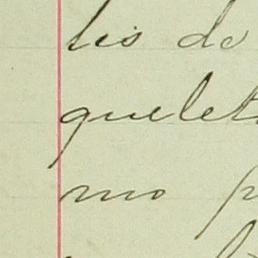 lis do
quelet
mo p